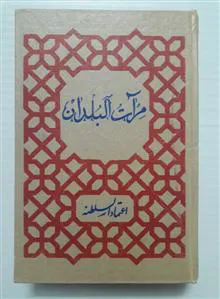 مرآت البلدان
اعتماد السلطنه